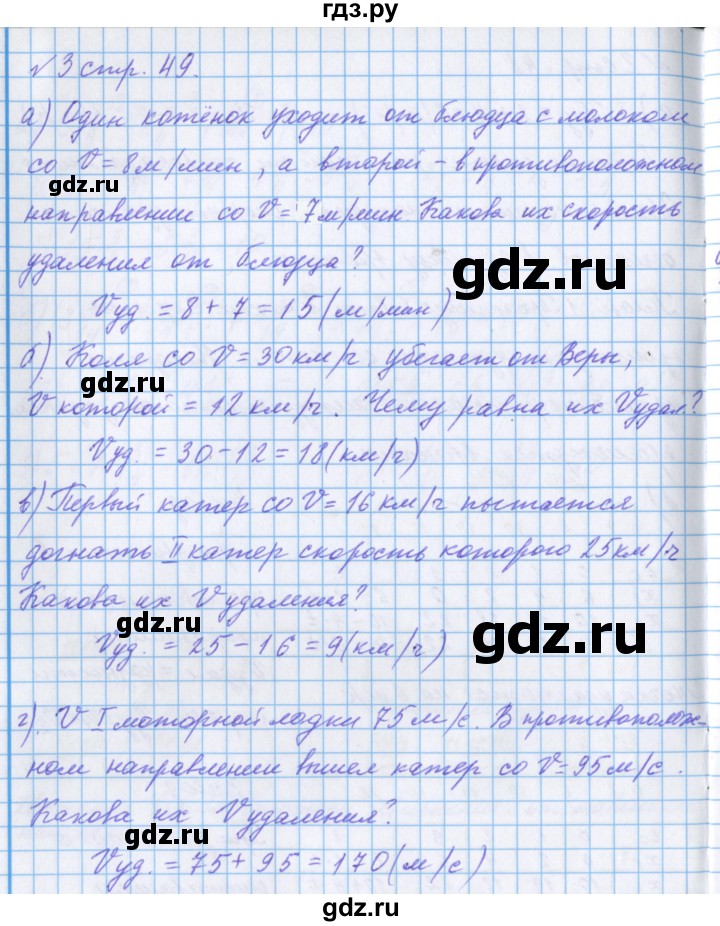 гдз.ру
№3 стр. 49.
а) Один котёнок уходит от блюдца с молоком
со V = 8 м/мин, а второй – в противоположном
gdz.ru
направлении со V = 7 м/мин. Какова их скорость
удаления от блюдца?
gdz.ru
Vуд. = 8 + 7 = 15 (м/мин)
б) Коля со V = 30 км/ч убегает от Веры,
gdz.ru
V которой = 12 км/ч. Чему равна их Vудал?
Vуд. = 30 – 12 = 18 (км/ч)
в) Первый катер со V = 16 км/ч пытается
догнать II катер скорость которого 25 км/ч
Какова их Vудаления?
gdz.ru
gdz.ru
Vуд. = 25 – 16 = 9 (км/ч)
г). V I моторной лодки 75 м/с. В противополож-
ном направлении вышел катер со V = 95 м/с.
Какова их Vудаления?
gdz.ru
Vуд. = 75 + 95 = 170 (м/с)
gdz.ru